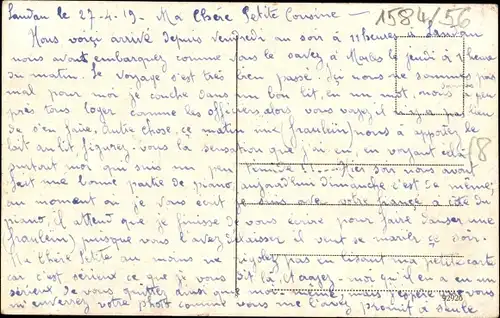 Landau le 27-4-19. Ma Chère Petite Cousine -
1584/56
Nous voici arrivé depuis vendredi au soir à 11 heures à Landau
nous avons embarquez comme vous le savez à Marles le jeudi à 7 heures
du matin. Le voyage s'est très bien passé. Ici nous ne sommes pas
mal pour moi je couche dans un bon lit, en un mot, nous
près tous loger comme les officiers alors vous voyez il n'y a pas lieu
de s'en faire. Autre chose, ce matin une (fraulein) nous à apporter le
lait au lit figurez-vous la sensation que j'ai eu en voyant cela
surtout moi qui suis un peu timide!!... Hier soir nous avons
fait une bonne partie de piano, aujourd'hui dimanche c'est le même
au moment où je vous écrit je suis avec votre frangin à côté du
piano, il attend que je finisse de vous écrire pour faire danser une
(fraulein) puisque vous l'avez délaisser il veut se marier ce soir.
Ma Chère Petite au moins ne rigolez pas en lisant ma petite
car c'est sérieux ce que je vous dit là. Maggy-moi qu'il en a eu un
sérieux de vous quitter ainsi que moi-même, mais j'espère que vous
m'enverrez votre photo comme vous me l'avez promit à seule
18
92920